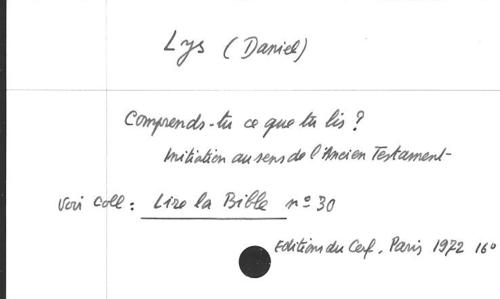 Lys (Daniel)
Comprends-tu ce que tu lis ?
Initiation au sens de l'Ancien Testament-
Voir Coll : Lire la Bible nº 30
Editions du Cerf. Paris 1972 16º